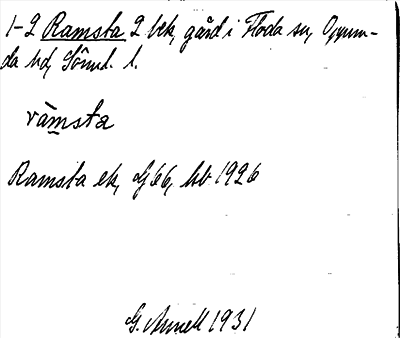 1-2 Ramsta 2 blk, gård i Floda sn, Oppun-
da hd, Sörml. l.
ràmsta
Ramsta ek, G 66, hb 1926
G. Annell 1931